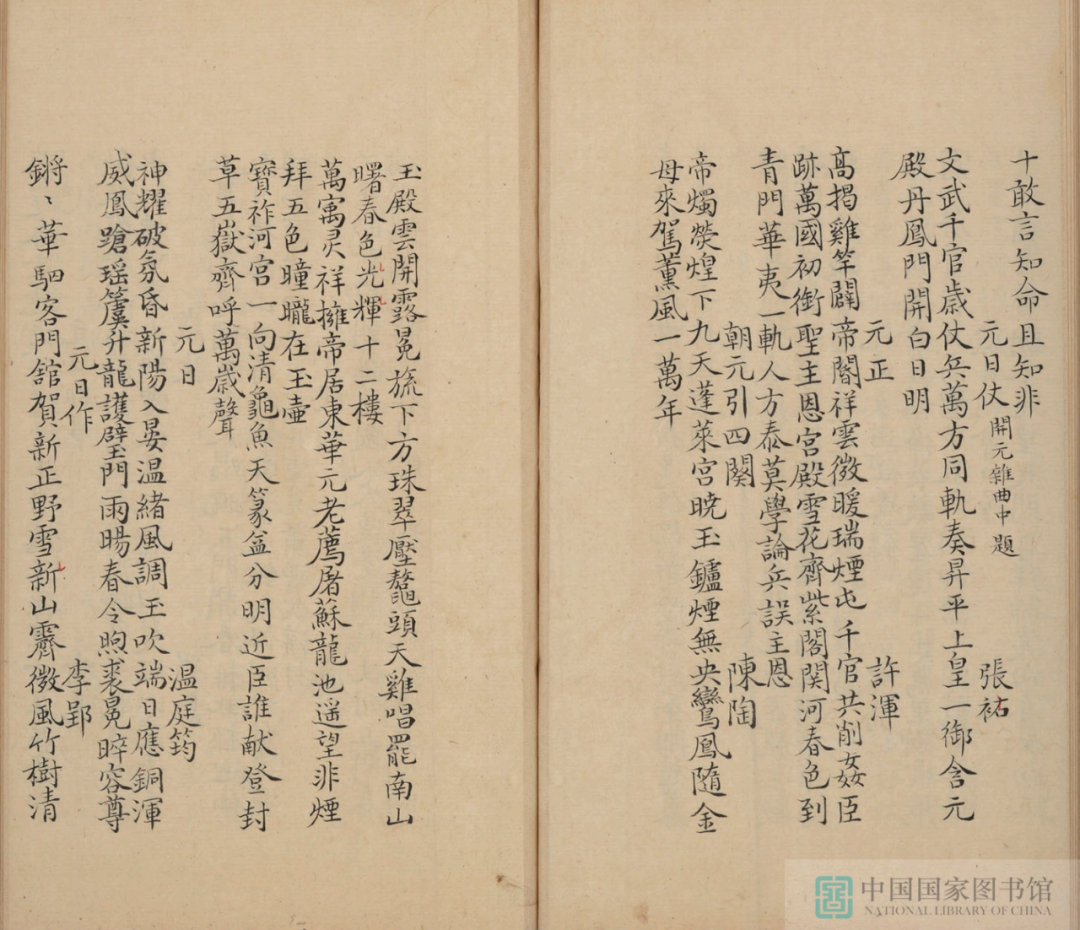 十敢言知命且知非
元日仗 開元雜曲中題 張祐
文武千官歲仗兵萬方同軌奏昇平上皇一御含元
殿丹鳳門開白日明
元正 許渾
高揭雞竿闢帝閽祥雲微暖瑞煙屯千官共削姦臣
跡萬國初銜聖主恩宮殿雪花齊紫閣関河春色到
青門華夷一軌人方泰莫學論兵誤主恩
朝元引四闋 陳陶
帝燭熒煌下九天蓬萊宮曉玉鑪煙無央鸞鳳隨金
母來駕薰風一萬年
玉殿雲開露冕旒下方珠翠壓鼇頭天雞唱罷南山
曙春色光輝十二樓
萬寓灵祥擁帝居東華元老薦屠蘇龍池遥望非煙
拜五色曈曨在玉壷
寶祚河宮一向清龜魚天篆益分明近臣誰献登封
草五嶽齊呼萬歲聲
元日 温庭筠
神耀破氛昏新陽入晏温緒風調玉吹端日應銅渾
威鳳蹌瑶簴升龍護璧門雨暘春令煦裘冕晬容尊
元日作 李郢
鏘〻華駟客門館賀新正野雪新山霽微風竹樹清
中国国家图书馆
NATIONAL LIBRARY OF CHINA